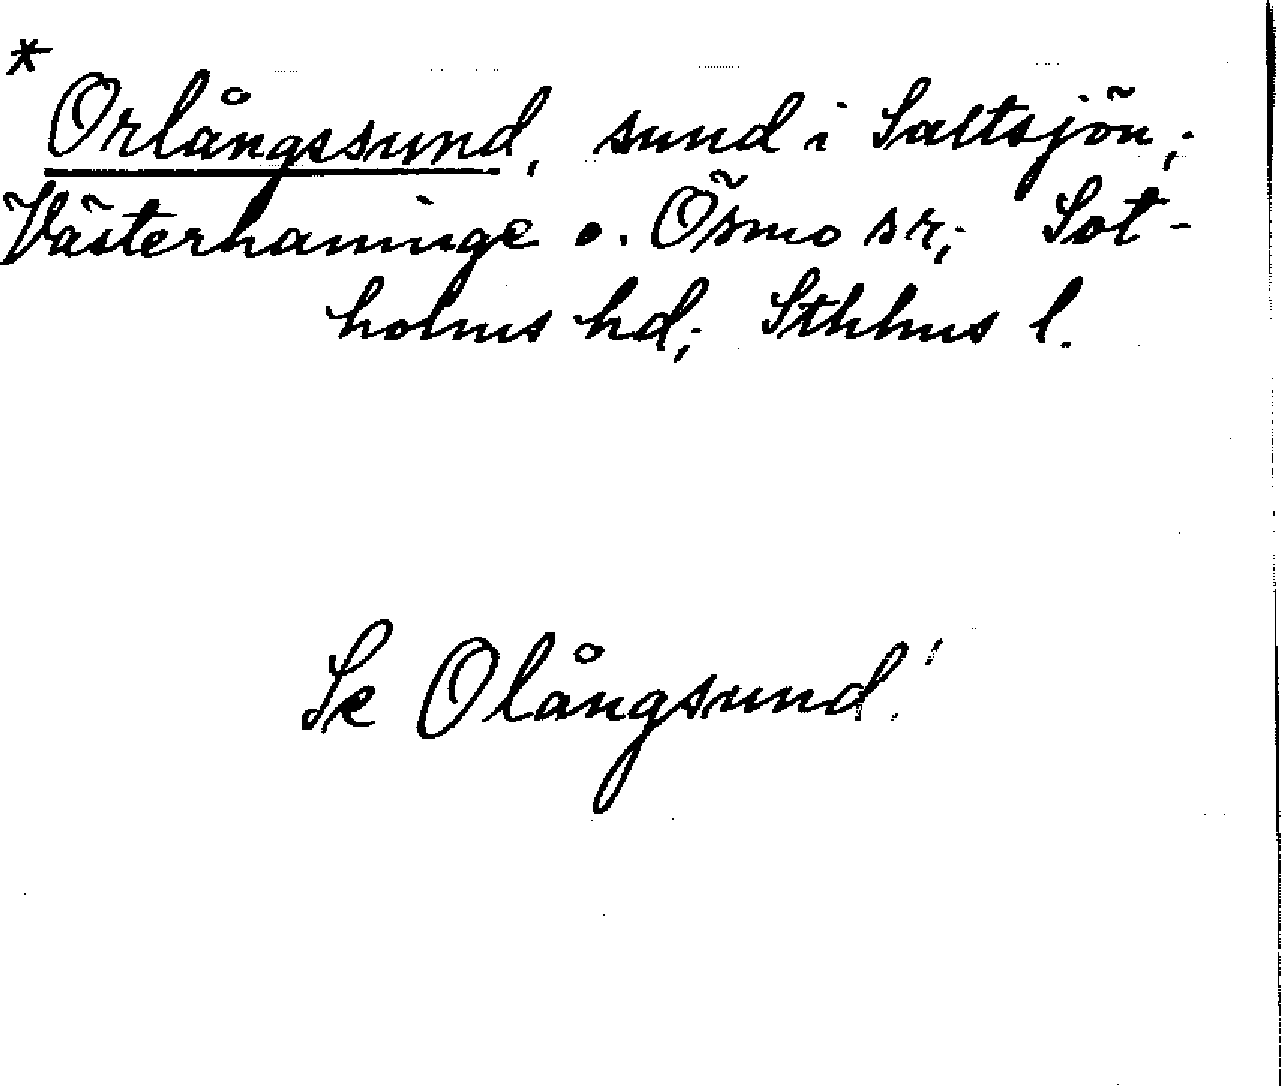 *
Orlångssund, sund i Saltsjön;
Västerhaninge o. Ösmo sr; Sot-
holms hd; Sthlms l.
Se Olångsund!